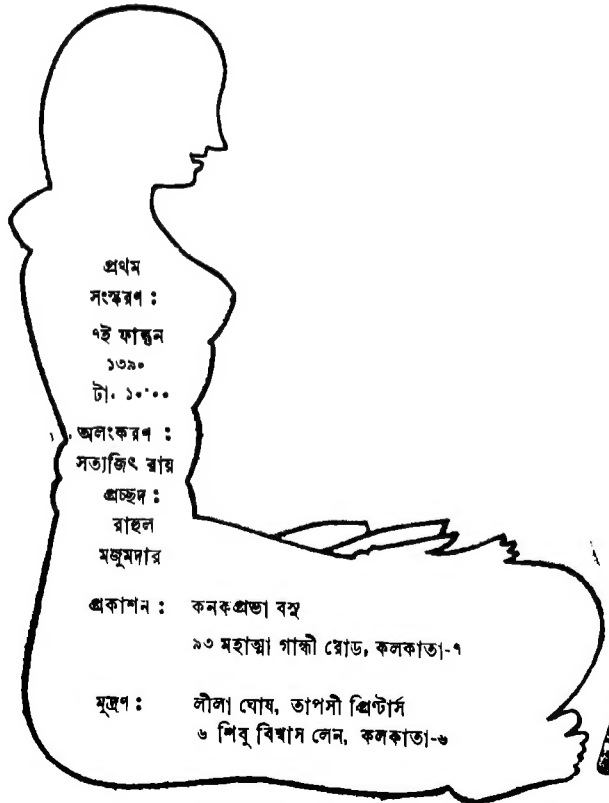 প্রথম
সংস্করণ :
৭ই ফাল্গুন
১৩৯০
টা. ১০·০০
অলংকরণ :
সত্যজিৎ রায়
প্রচ্ছদ :
রাহুল
মজুমদার
প্রকাশন : কনকপ্রভা বসু
৯৩ মহাত্মা গান্ধী রোড, কলকাতা-৭
মুদ্রণ : লীলা ঘোষ, তাপসী প্রিণ্টার্স
৬ শিবু বিশ্বাস লেন, কলকাতা-৬